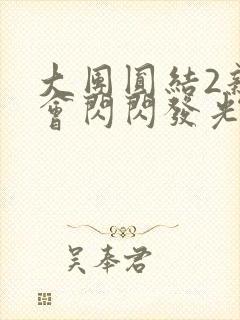 大團圓結2新
會閃閃發光
吴奉君